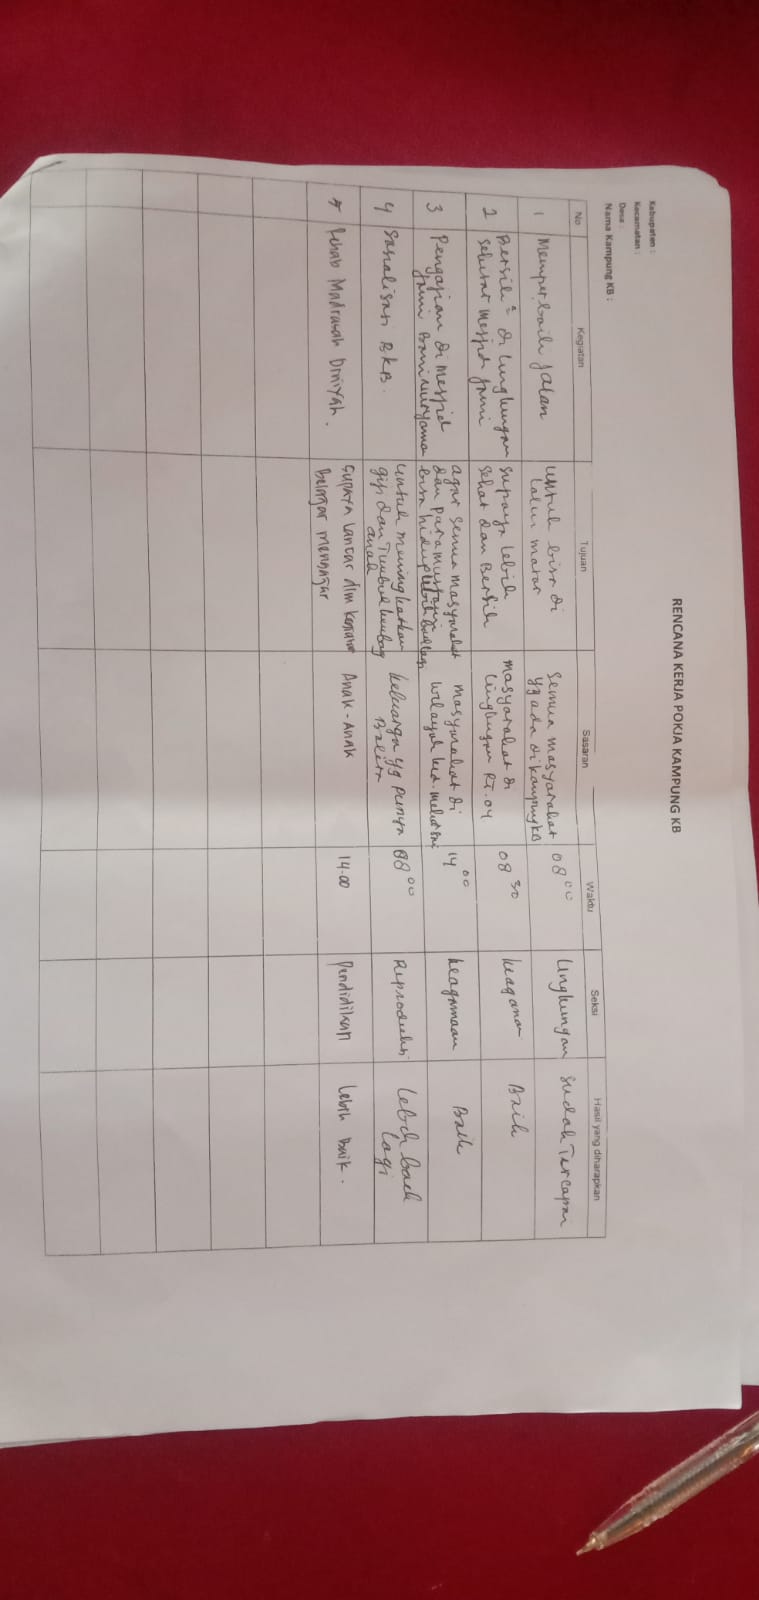 RENCANA KERJA POKJA KAMPUNG KB
Kabupaten :
Kecamatan :
Desa :
Nama Kampung KB :
No Kegiatan Tujuan Sasaran Waktu Seksi Hasil yang diharapkan
1 Memperbaiki jalan
untuk bisa di
lalui
Semua masyarakat
yg ada di kampung kb
08 00
lingkungan
sudah Tercapai
2 Bersih² di lingkungan
sekitar mesjid jami
supaya lebih
sehat dan Bersih
masyarakat di
lingkungan RT.04
08 30
Baik
3 Pengajian di mesjid
jami
agar semua masyarakat
dan para
bisa hidup lebih baik lagi
masyarakat di
wilayah
14 00
keagamaan
Baik
4 Sosialisasi BKB.
untuk meningkatkan
gizi dan Tumbuh kembang
anak
keluarga yg punya
Balita
08 00
Reproduksi
Lebih baik
lagi
5 Rehab Madrasah Diniyah.
supaya lancar dlm
belajar mengajar
Anak-Anak
14.00
Pendidikan
Lebih Baik.